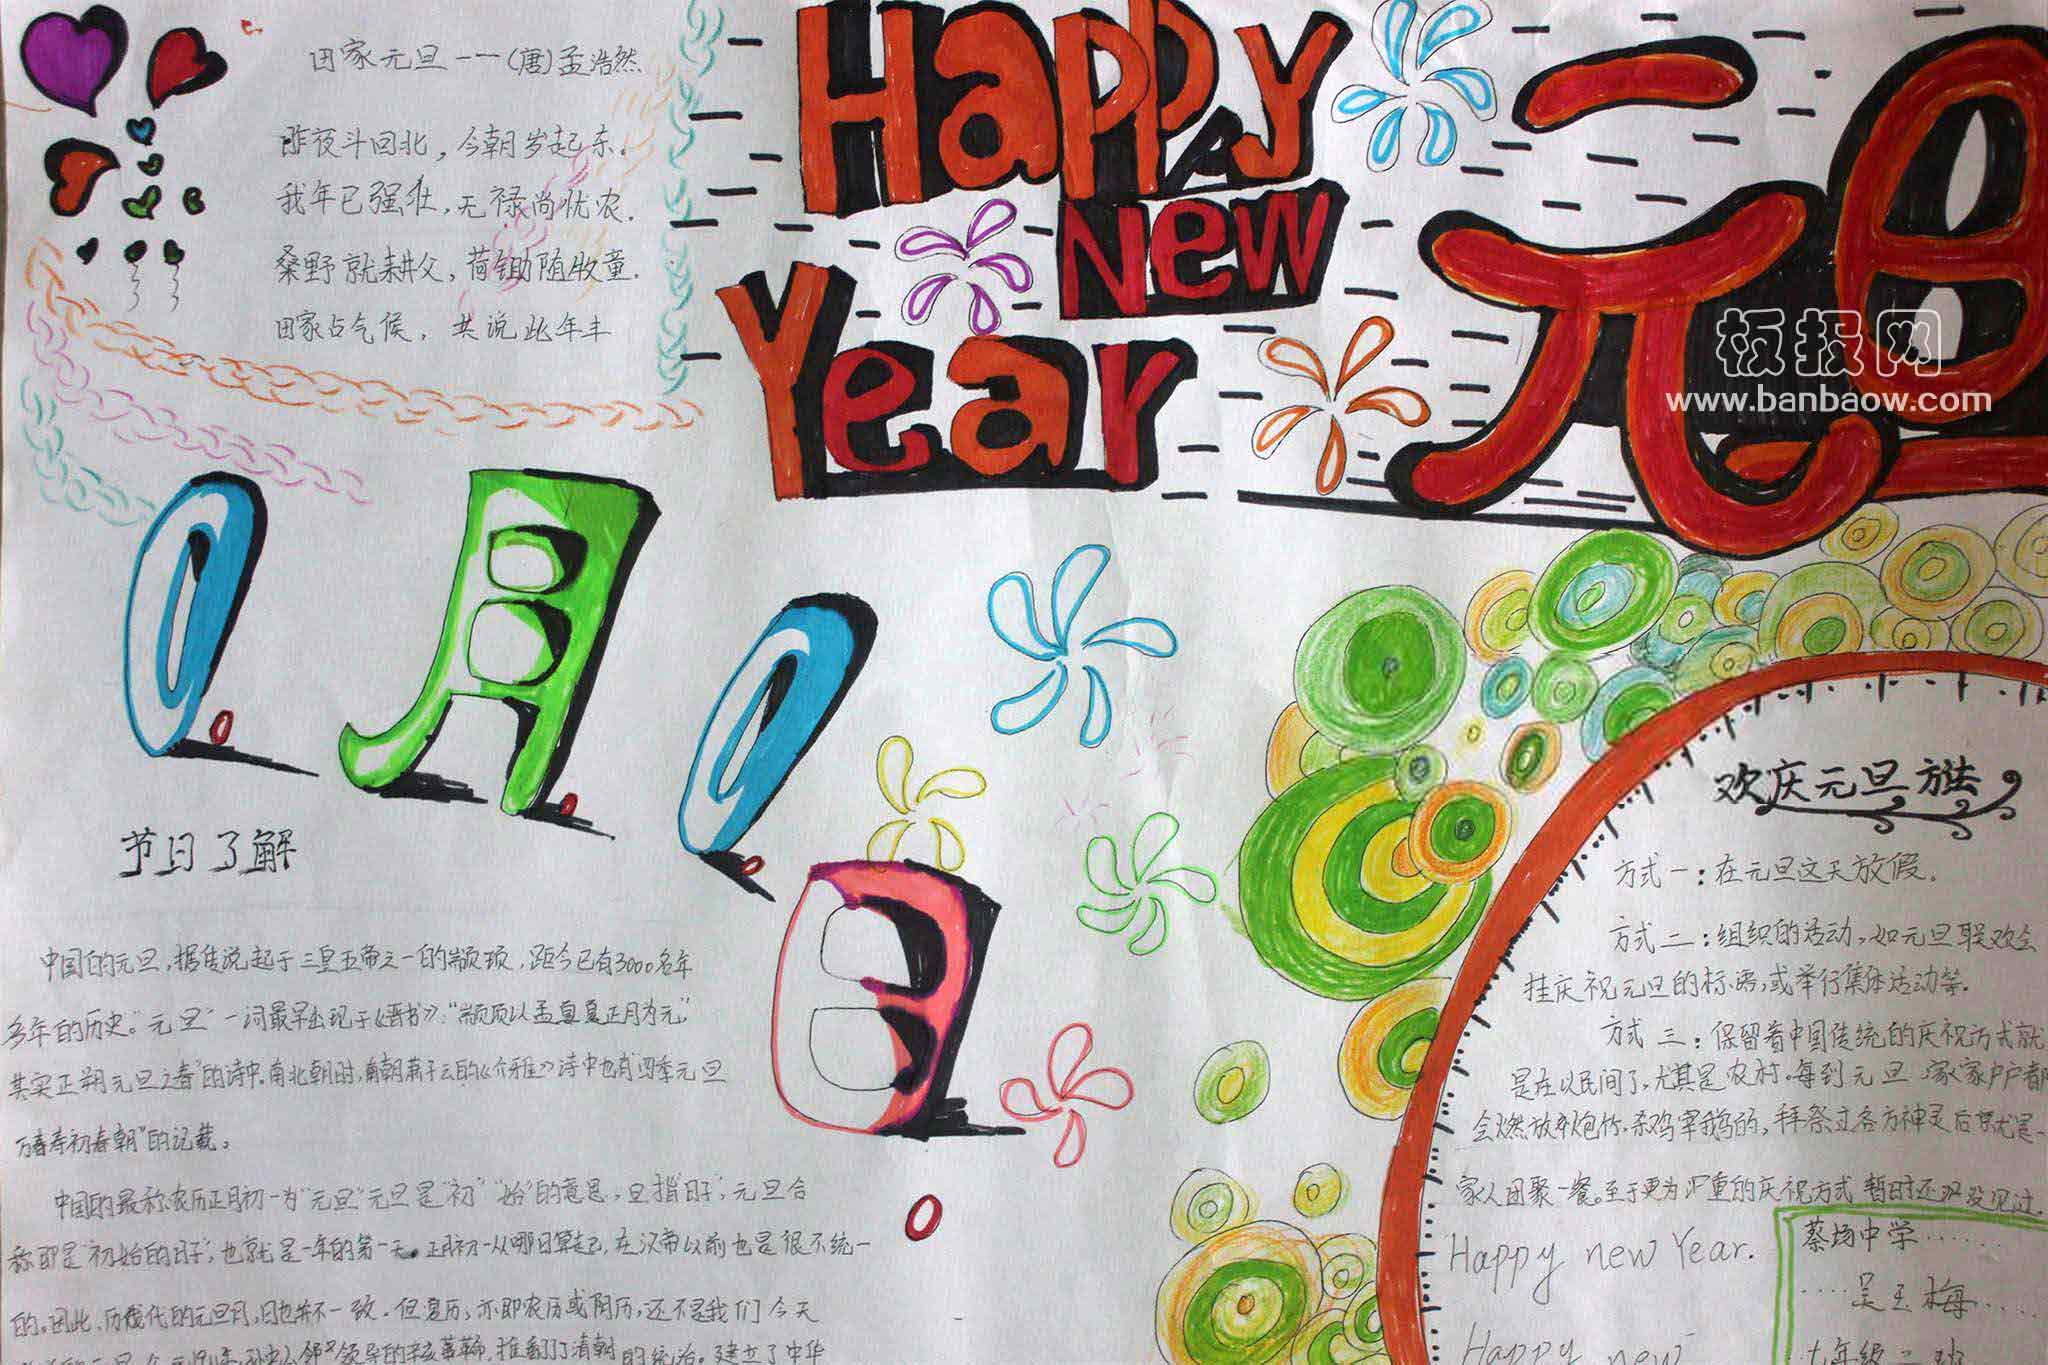 田家元旦——(唐)孟浩然
昨夜斗回北，今朝岁起东。
我年已强壮，无禄尚忧农.
桑野就耕父，荷锄随牧童.
田家占气候，共说此年丰
Happy
New
Year
元旦
板报网
www.banbaow.com
1月1日
节日了解
中国的元旦，据传说起于三皇五帝之一的颛顼，距今已有3000多年
多年的历史。"元旦"一词最早出现于《晋书》："颛顼以孟夏正月为元"
其实正朔元旦之春"的诗中.南北朝时,南朝萧子云的《介雅》诗中也有"四季元旦
万春寿初春朝"的记载。
中国的最称农历正月初一为"元旦"元旦是"初""始"的意思，旦指"日子"，元旦合
称即是"初始的日子"，也就是一年的第一天。正月初一从哪日算起，在汉帝以前也是很不统一
的。因此，历代的元旦月,日也并不一致.但夏历，亦即农历或阴历，还不是我们今天
领导的辛亥革命，推翻了清朝的统治。建立了中华
欢庆元旦方法
方式一：在元旦这天放假.
方式二：组织的活动，如元旦联欢会
挂庆祝元旦的标语，或举行集体活动等.
方式三：保留着中国传统的庆祝方式就
是在以民间了，尤其是农村。每到元旦，家家户户都
会燃放炮竹.杀鸡宰鹅的，拜祭过各方神灵后就是一
家人团聚一餐。至于更为严重的庆祝方式暂时还没见过.
Happy new Year.
蔡场中学……
……吴玉梅……
Happy new
七年级二班